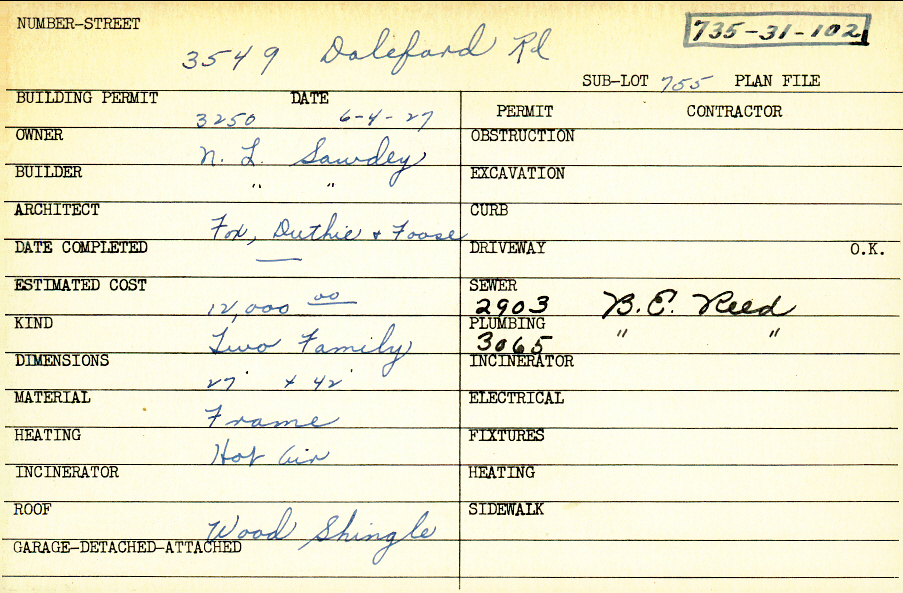 NUMBER-STREET
735-31-102
3549 Daleford Rd
SUB-LOT 755 PLAN FILE
BUILDING PERMIT DATE
3250 6-4-27
PERMIT CONTRACTOR
OWNER
N. L. Sawdey
OBSTRUCTION
BUILDER
" "
EXCAVATION
ARCHITECT
Fox, Duthie + Foose
CURB
DATE COMPLETED
—
DRIVEWAY O.K.
ESTIMATED COST
12,000 00
SEWER
2903 B.E. Reed
KIND
Two Family
PLUMBING
3065 " "
DIMENSIONS
27' x 42'
INCINERATOR
MATERIAL
Frame
ELECTRICAL
HEATING
Hot Air
FIXTURES
INCINERATOR
HEATING
ROOF
Wood Shingle
SIDEWALK
GARAGE-DETACHED-ATTACHED